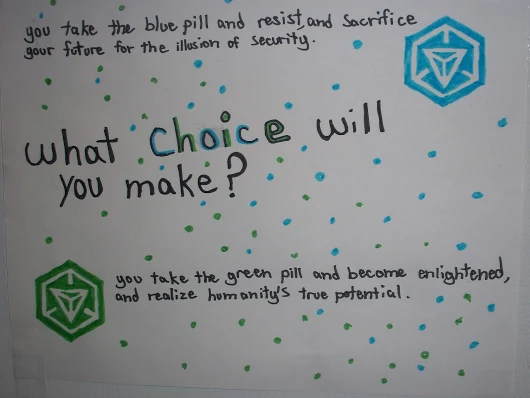 you take the blue pill and resist, and Sacrifice
your future for the illusion of security.
what Choice will
you make?
you take the green pill and become enlightened,
and realize humanity's true potential.